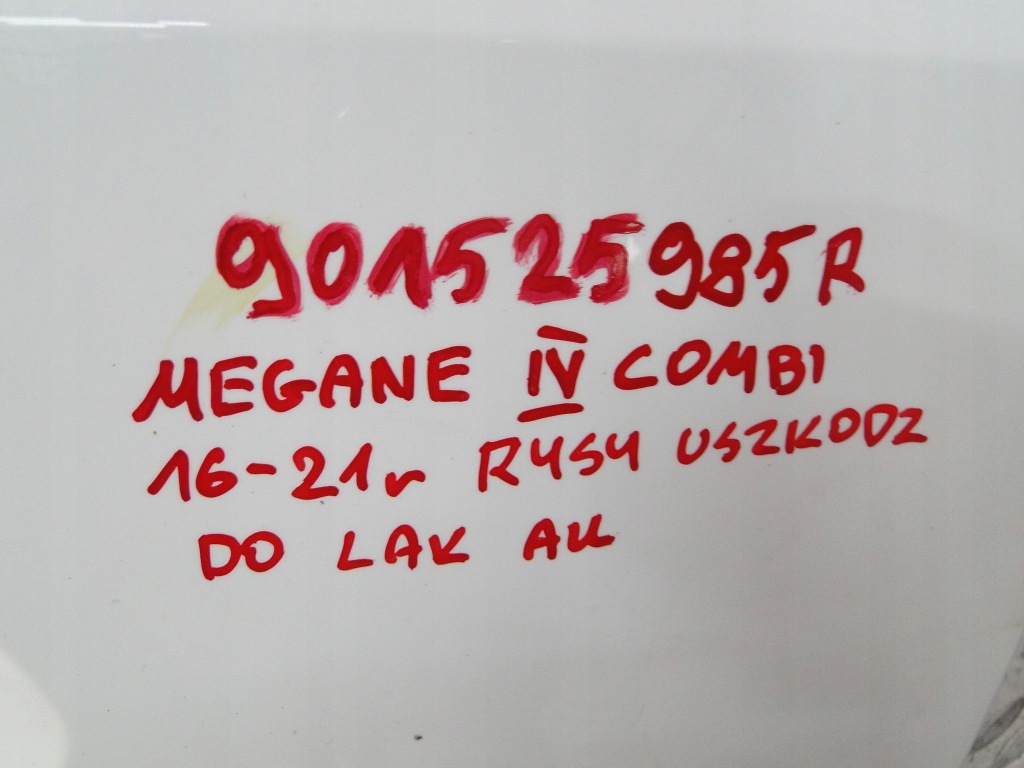 901525985R
MEGANE IV COMBI
16-21r RYSY USZKODZ
DO LAK AK